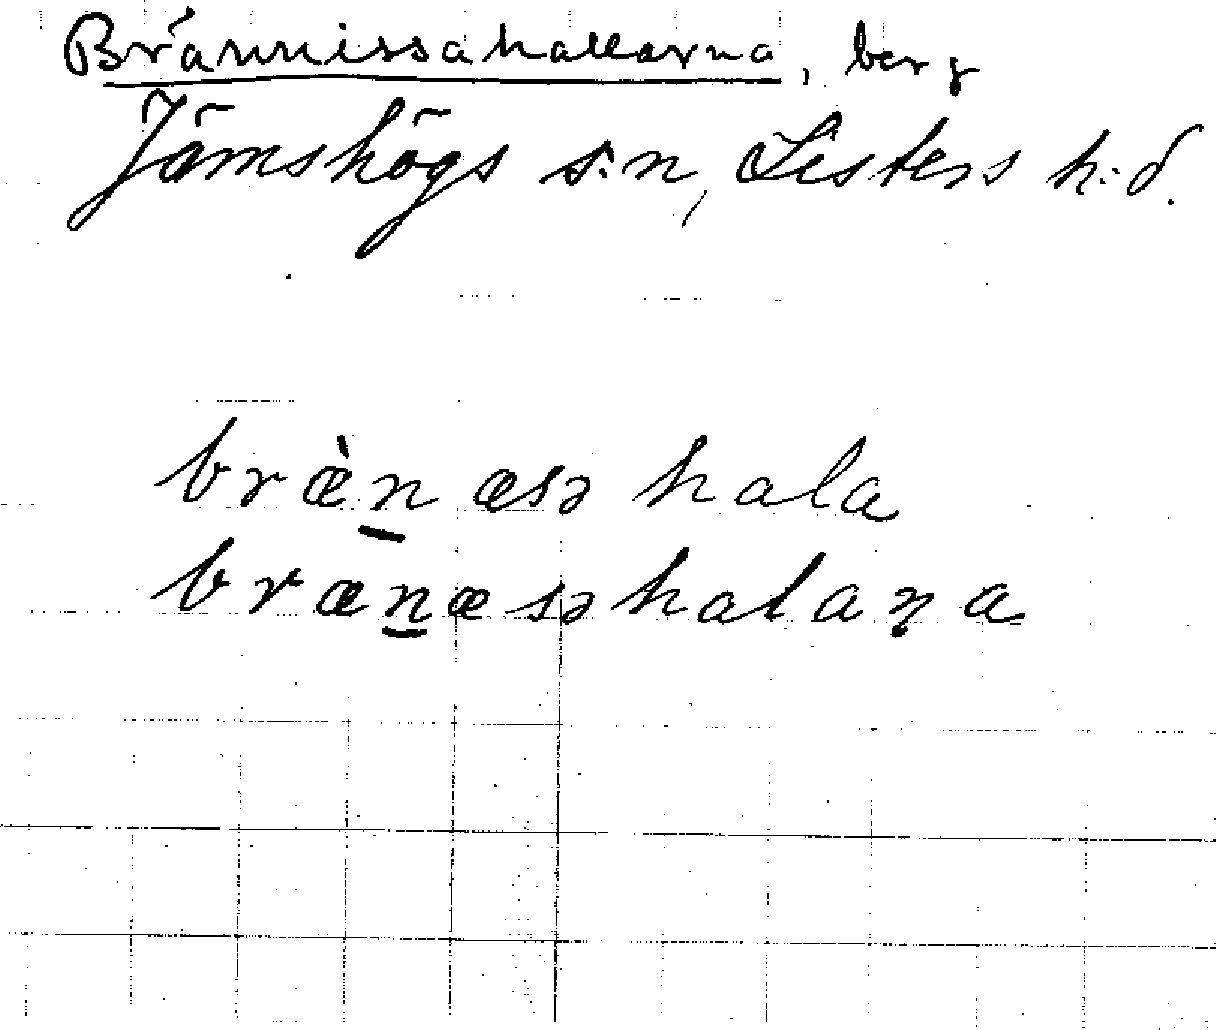 Brännissahallarna, berg
Jämshögs s:n, Listers h:d.
bræ̀n̠æsə hala
bræn̠æsəhalaṇa